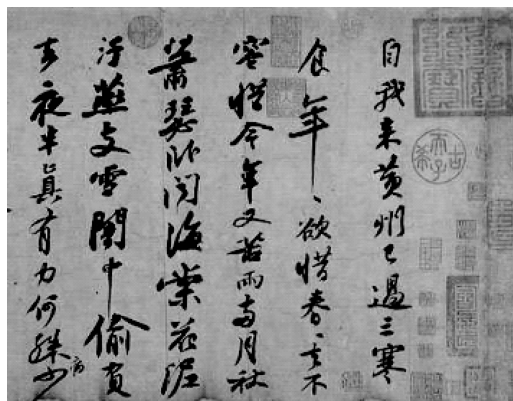 自我來黃州已過三寒
食年〻欲惜春〻去不
容惜今年又苦雨兩月秋
蕭瑟卧聞海棠花泥
汙燕支雪闇中偷負
去夜半真有力何殊病少
古希天子